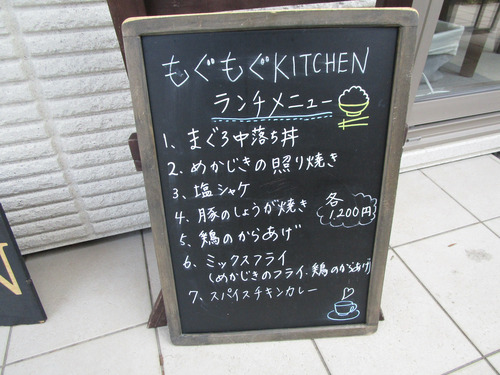 もぐもぐKITCHEN
ランチメニュー
1、まぐろ中落ち丼
2、めかじきの照り焼き
3、塩シャケ
4、豚のしょうが焼き
5、鶏のからあげ
6、ミックスフライ
(めかじきのフライ、鶏のからあげ)
7、スパイスチキンカレー
各
1,200円
N